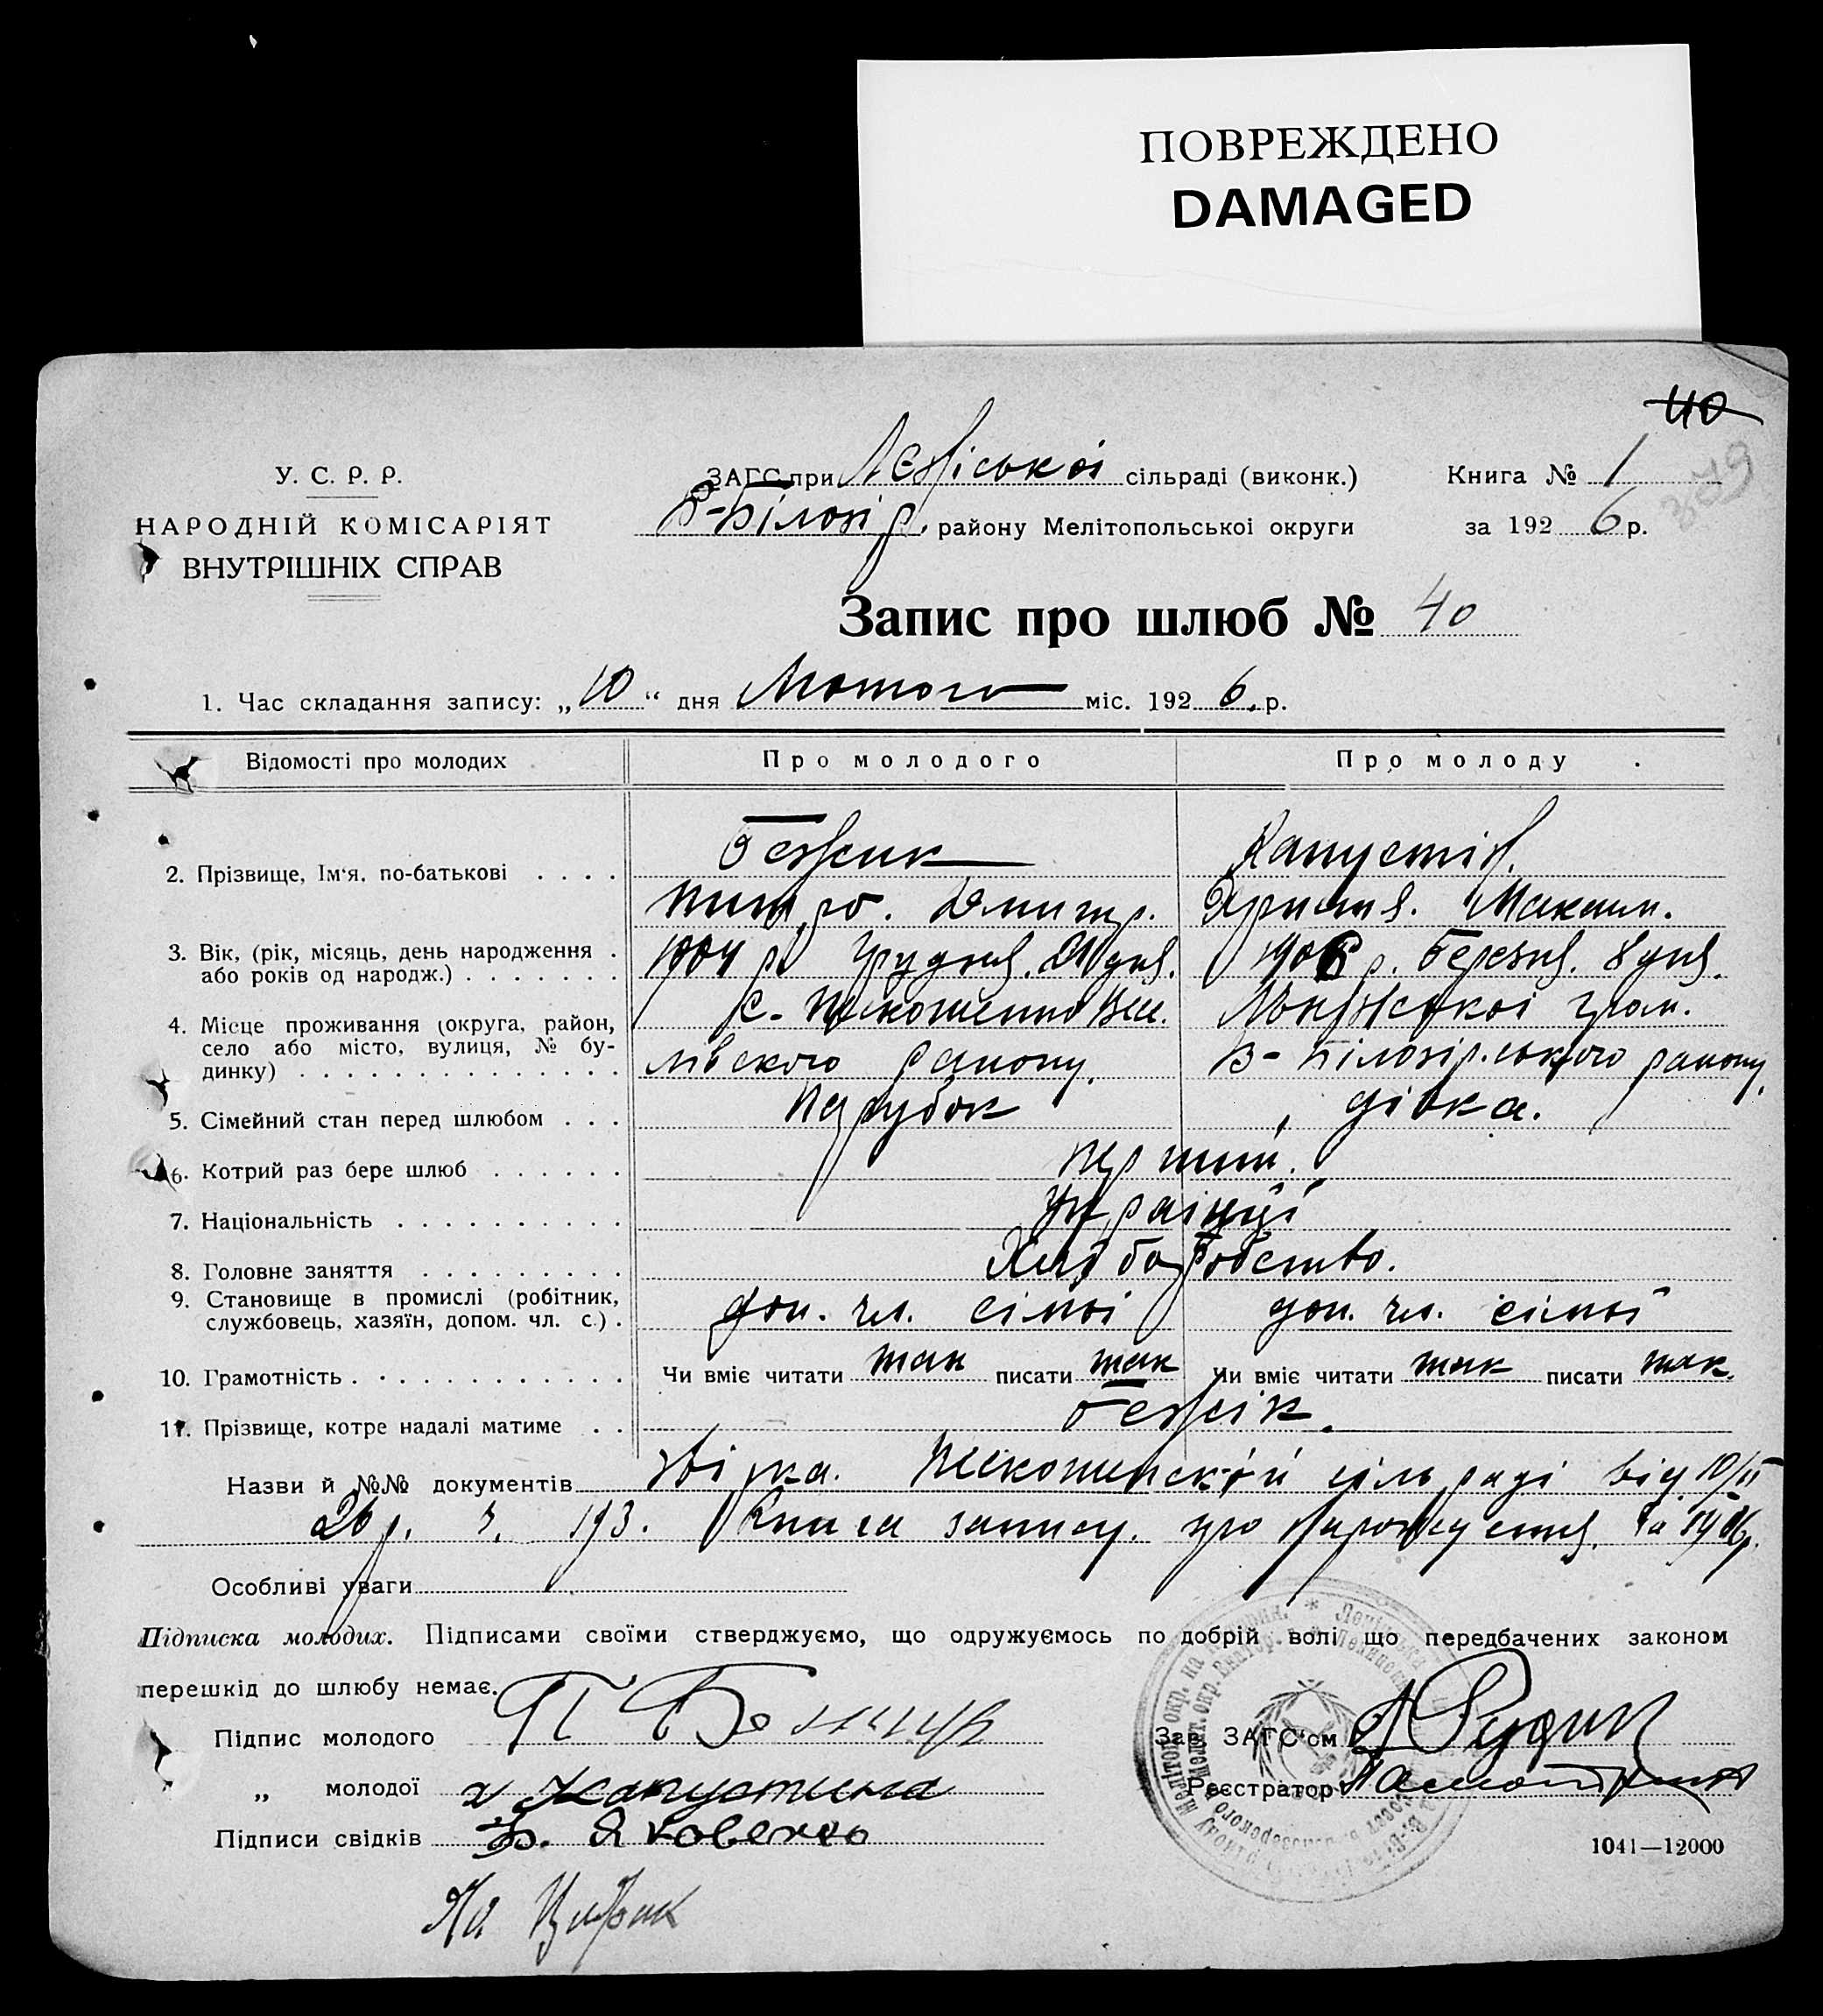 ПОВРЕЖДЕНО
DAMAGED
40
У. С. Р. Р.
НАРОДНІЙ КОМІСАРІЯТ
ВНУТРІШНІХ СПРАВ
ЗАГС при сільраді (виконк.)
В-Білозір. району Мелітопольськоі округи
Книга № 1
за 1926 р.
379
Запис про шлюб № 40
1. Час складання запису: „10“ дня Лютого міс. 1926. р.
Відомості про молодих
Про молодого
Про молоду
2. Прізвище, Ім'я, по-батькові . . . .
Капустін.
Дмитр.
Макаим.
3. Вік, (рік, місяць, день народження .
або років од народж.) . . . . . . .
1904 р. Грудня. 21 дня.
1906 р. Березня. 8 дня.
4. Місце проживання (округа, район,
село або місто, вулиця, № бу-
динку) . . . . . . . . . . . . . .
С.
району.
гром.
В-Білозір.ського району.
5. Сімейний стан перед шлюбом . . .
Парубок
дівка.
6. Котрий раз бере шлюб . . . . . .
перший.
7. Національність . . . . . . . . . .
Украінці
8. Головне заняття . . . . . . . . .
Хліборобство.
9. Становище в промислі (робітник,
службовець, хазяїн, допом. чл. с.) .
доп. чл. сімьі
доп. чл. сімьі
10. Грамотність . . . . . . . . . . .
Чи вміє читати так писати так
Чи вміє читати так писати так.
11. Прізвище, котре надалі матиме . .
Бежік.
Назви й №№ документів сільраді від 10/II
26 р. ч. 193. Книга запису. про народження. за 1906 р.
Особливі уваги
Підписка молодих. Підписами своїми стверджуємо, що одружуємось по добрій волі що передбачених законом
перешкід до шлюбу немає.
Підпис молодого П
„ молодої х Капустина
Підписи свідків Яковенко
Зав. ЗАГС'ом
Реєстратор
1041—12000